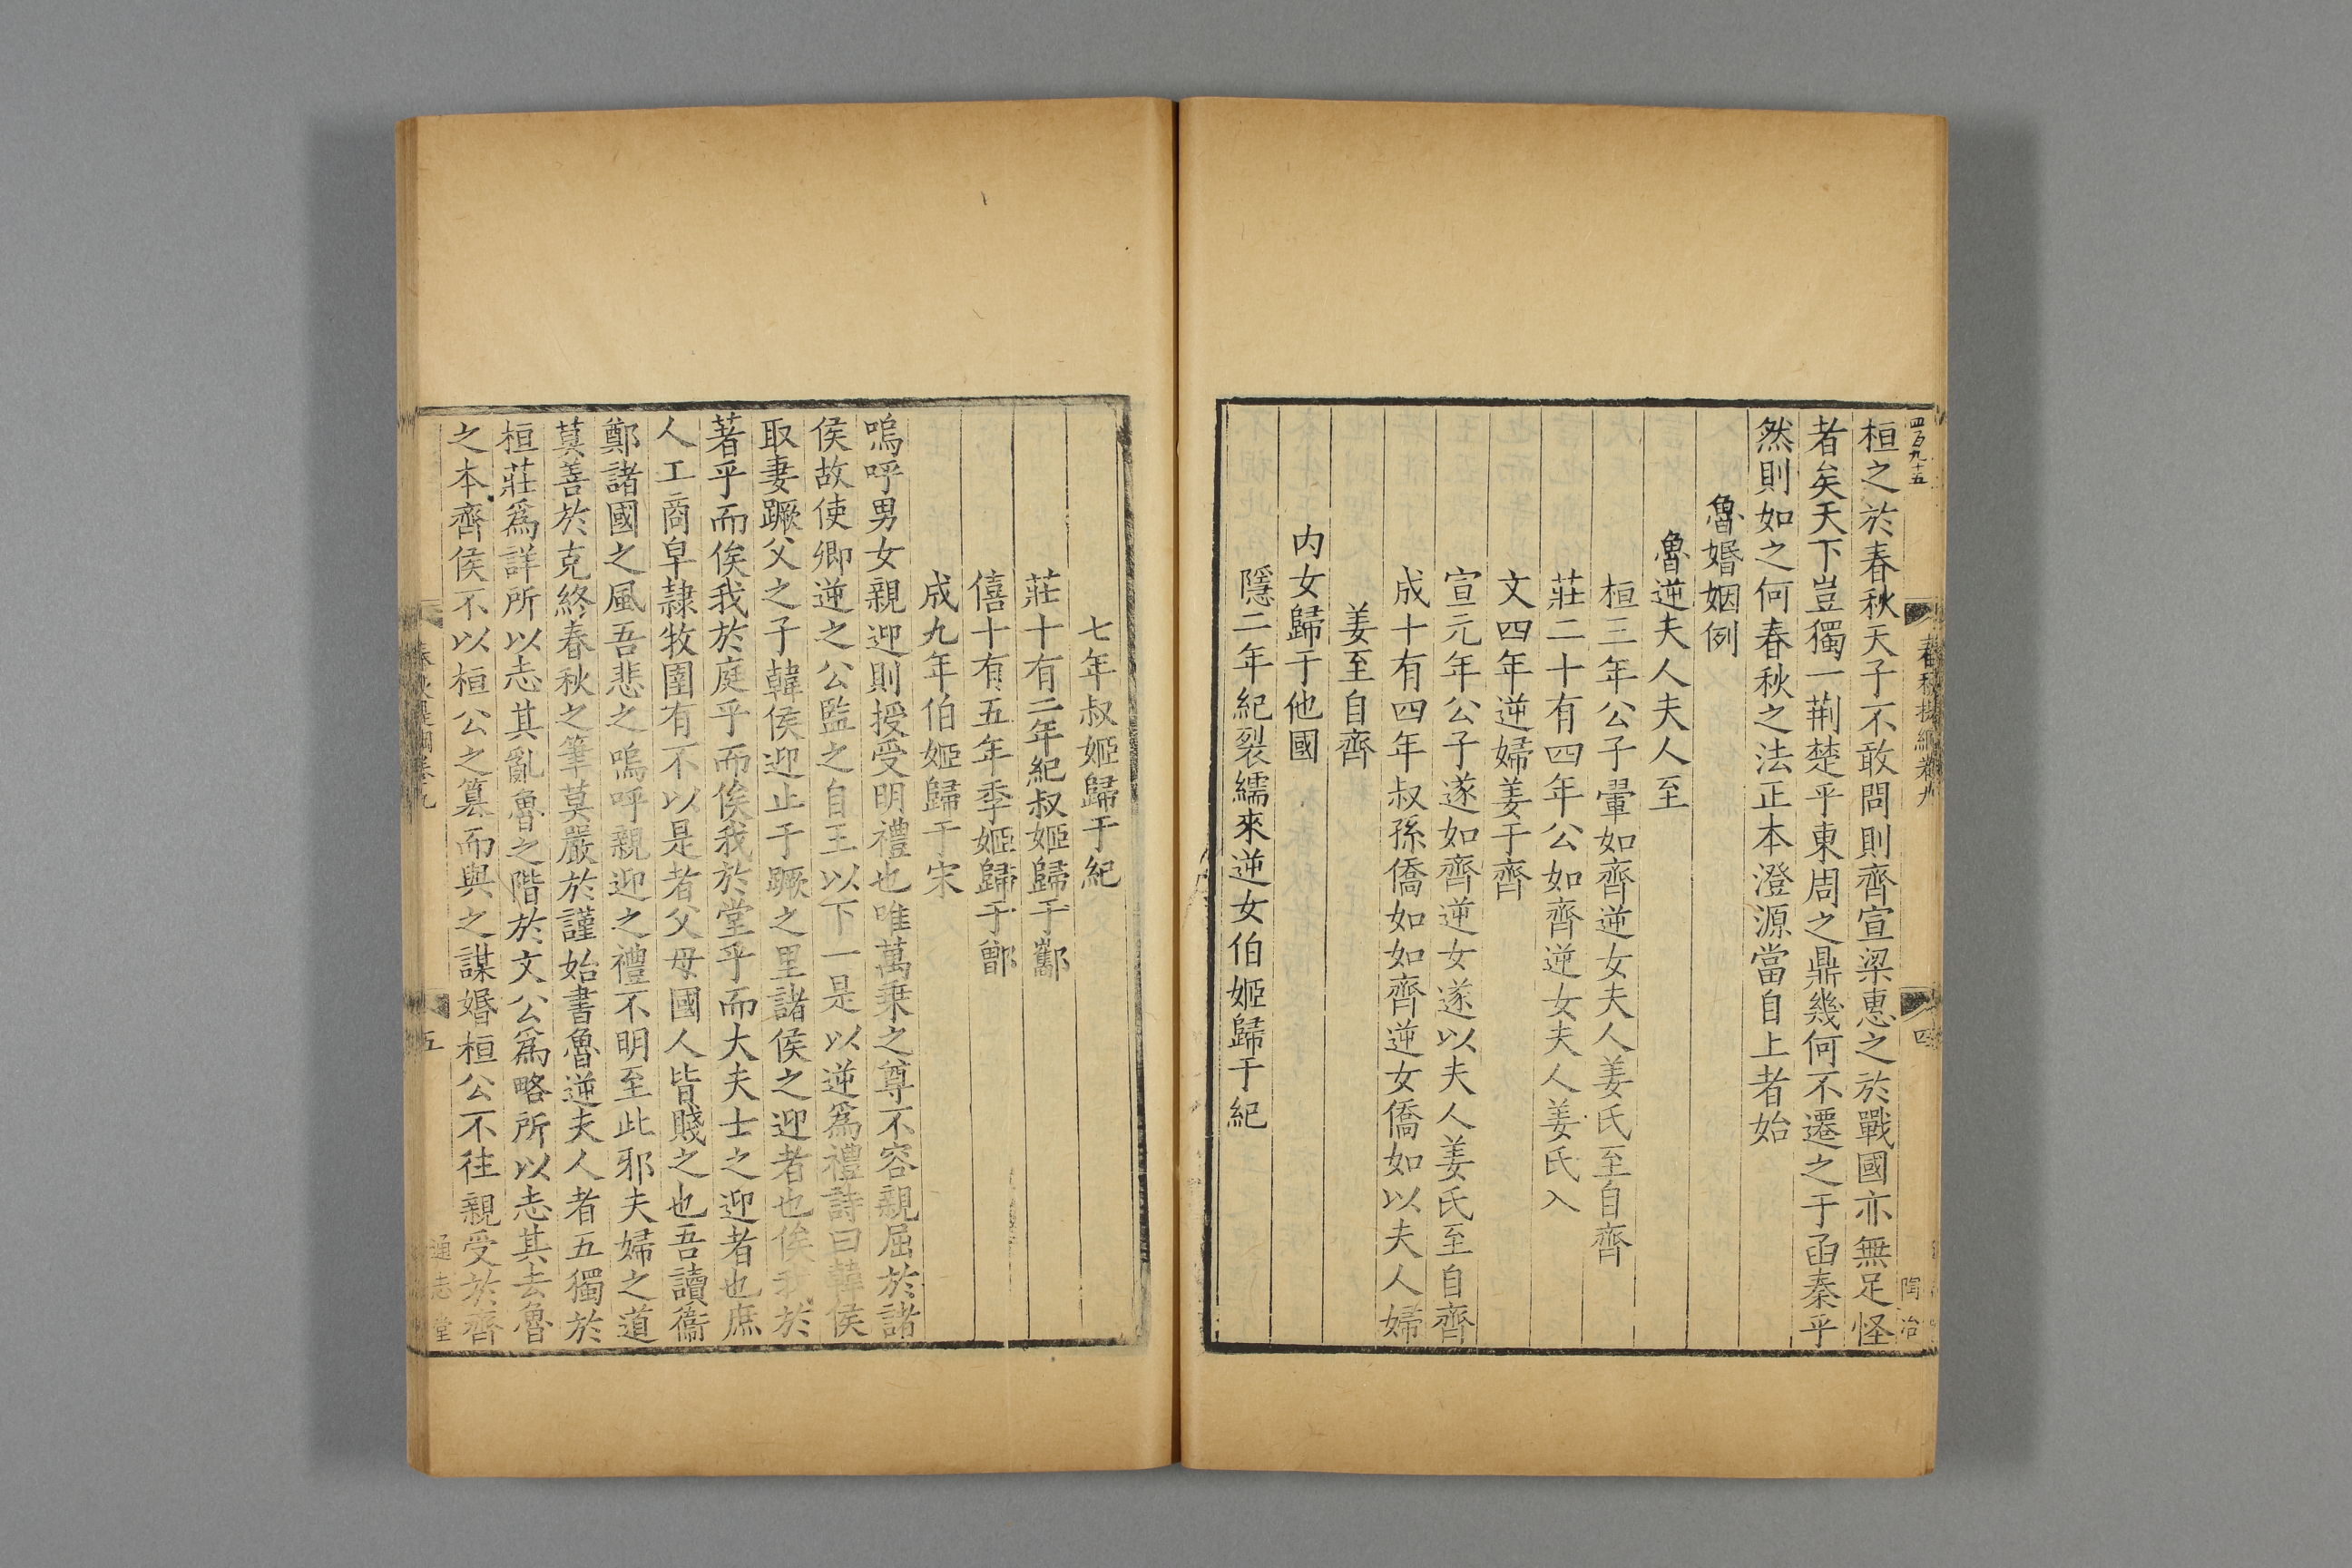 四百九十五
春秋提綱卷九
四
陶冶
桓之於春秋天子不敢問則齊宣梁惠之於戰國亦無足怪
者矣天下豈獨一荆楚乎東周之鼎幾何不遷之于函秦乎
然則如之何春秋之法正本澄源當自上者始
魯婚姻例
魯逆夫人夫人至
桓三年公子翬如齊逆女夫人姜氏至自齊
莊二十有四年公如齊逆女夫人姜氏入
文四年逆婦姜于齊
宣元年公子遂如齊逆女遂以夫人姜氏至自齊
成十有四年叔孫僑如如齊逆女僑如以夫人婦
姜至自齊
内女歸于他國
隱二年紀裂繻來逆女伯姬歸于紀
七年叔姬歸于紀
莊十有二年紀叔姬歸于酅
僖十有五年季姬歸于鄫
成九年伯姬歸于宋
嗚呼男女親迎則授受明禮也唯萬乗之尊不容親屈於諸
侯故使卿逆之公監之自王以下一是以逆爲禮詩曰韓侯
取妻蹶父之子韓侯迎止于蹶之里諸侯之迎者也俟我於
著乎而俟我於庭乎而俟我於堂乎而大夫士之迎者也庶
人工商皁隷牧圉有不以是者父母國人皆賤之也吾讀衞
鄭諸國之風吾悲之嗚呼親迎之禮不明至此邪夫婦之道
莫善於克終春秋之筆莫嚴於謹始書魯逆夫人者五獨於
桓莊爲詳所以志其亂魯之階於文公爲略所以志其去魯
之本齊侯不以桓公之簒而與之謀婚桓公不徃親受於齊
春秋提綱卷九
五
通志堂